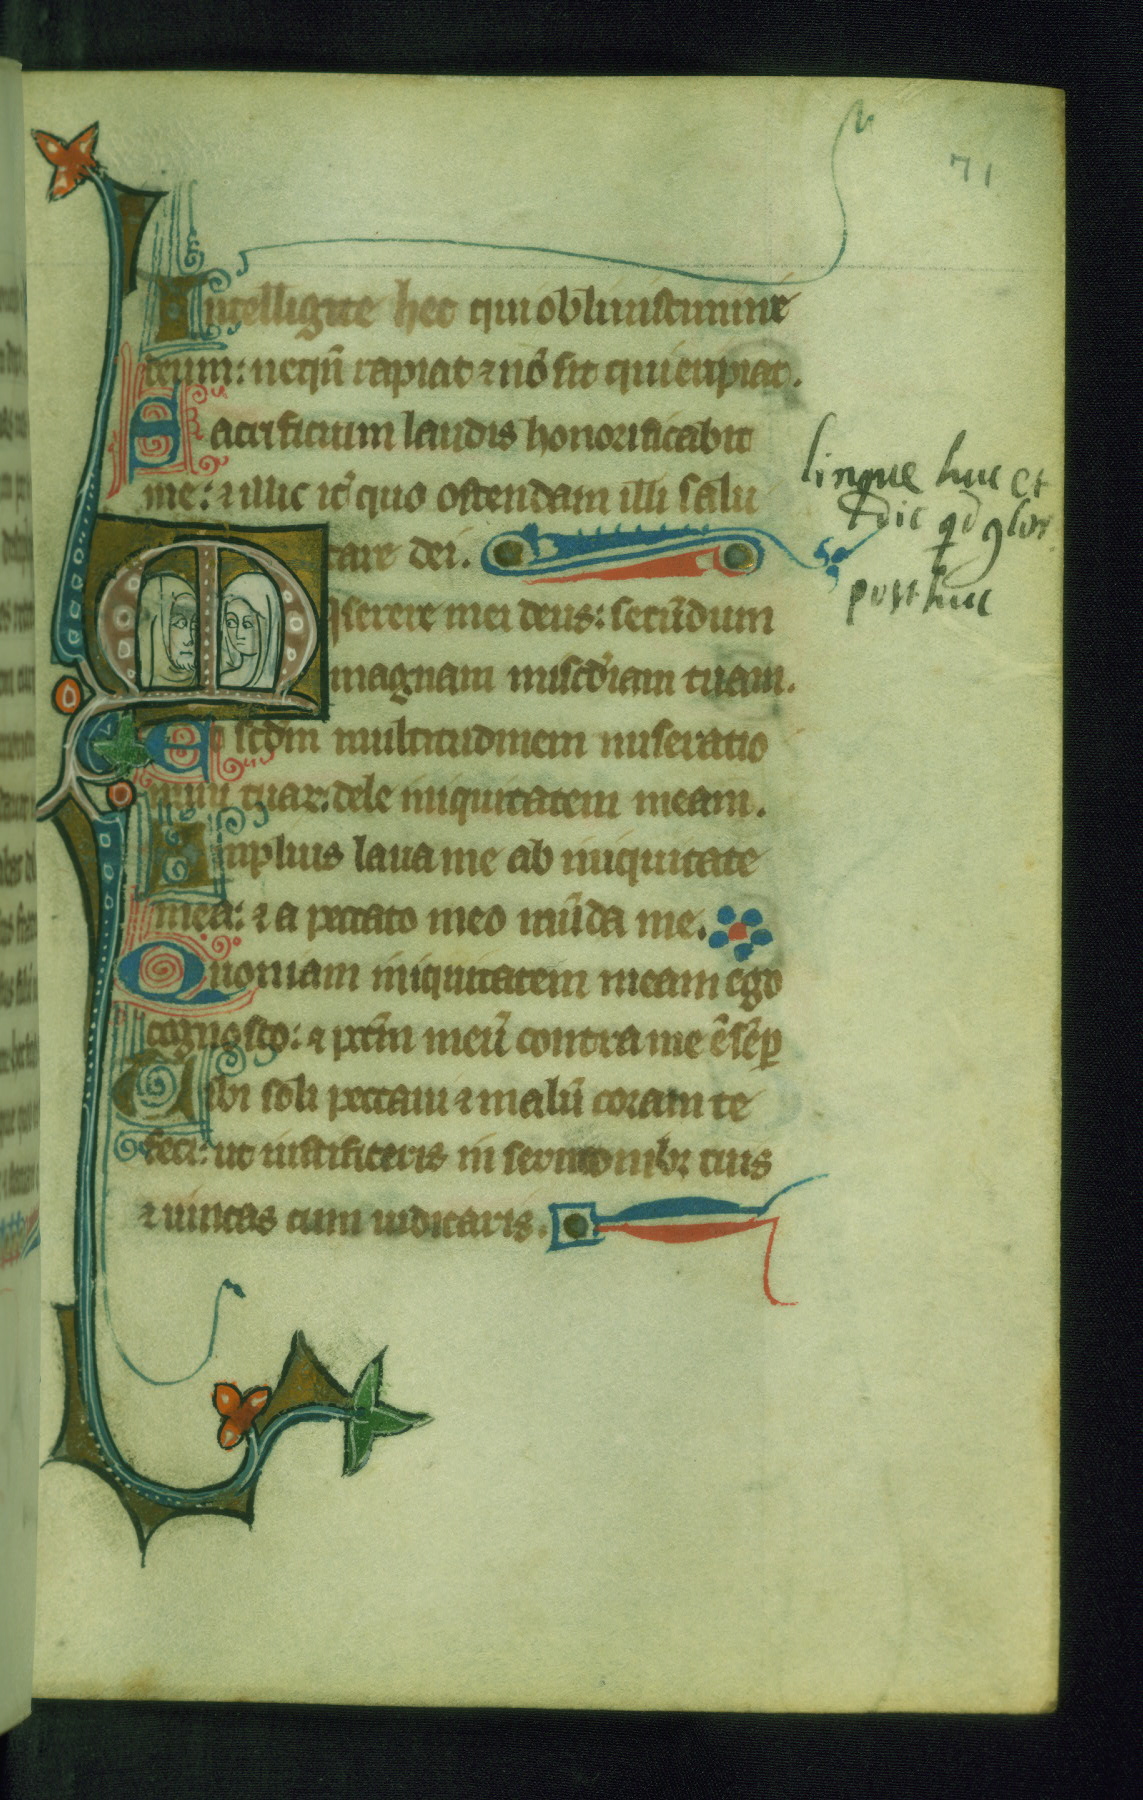 71
Intelligite hec qui obliuiscimini
deum: nequn̄ rapiat ⁊ nō sit qui eripiat.
Sacrificium laudis honorificabit
me: ⁊ illic it͛ quo ostendam illi salu
tare dei.
Miserere mei deus: secūdum
magnam misc̄diam tuam.
Et scd̄m multitudinem miseratio
num tuar̄: dele iniquitatem meam.
Amplius laua me ab iniquitate
mea: ⁊ a peccato meo mūda me.
Quoniam iniquitatem meam ego
cognosco: ⁊ pctm̄ meū contra me ē sēp
Tibi soli peccaui ⁊ malū coram te
feci: ut iustificeris in sermonibꝫ tuis
⁊ uincas cum iudicaris.
linque huc et
dic
post huc